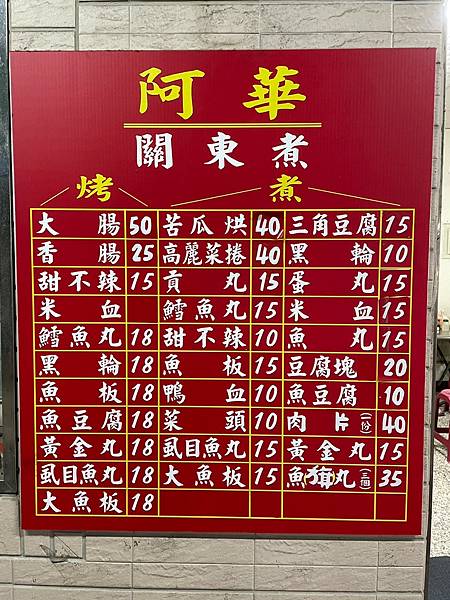 阿華
關東煮
烤 煮
大腸 50 苦瓜烘 40 三角豆腐 15
香腸 25 高麗菜捲 40 黑輪 10
甜不辣 15 貢丸 15 蛋丸 15
米血 鱈魚丸 15 米血 15
鱈魚丸 18 甜不辣 10 魚丸 15
黑輪 18 魚板 15 豆腐塊 20
魚板 18 鴨血 10 魚豆腐 10
魚豆腐 18 菜頭 10 肉片(一份) 40
黃金丸 18 虱目魚丸 15 黃金丸 15
虱目魚丸 18 大魚板 15 魚丸(三個) 35
大魚板 18